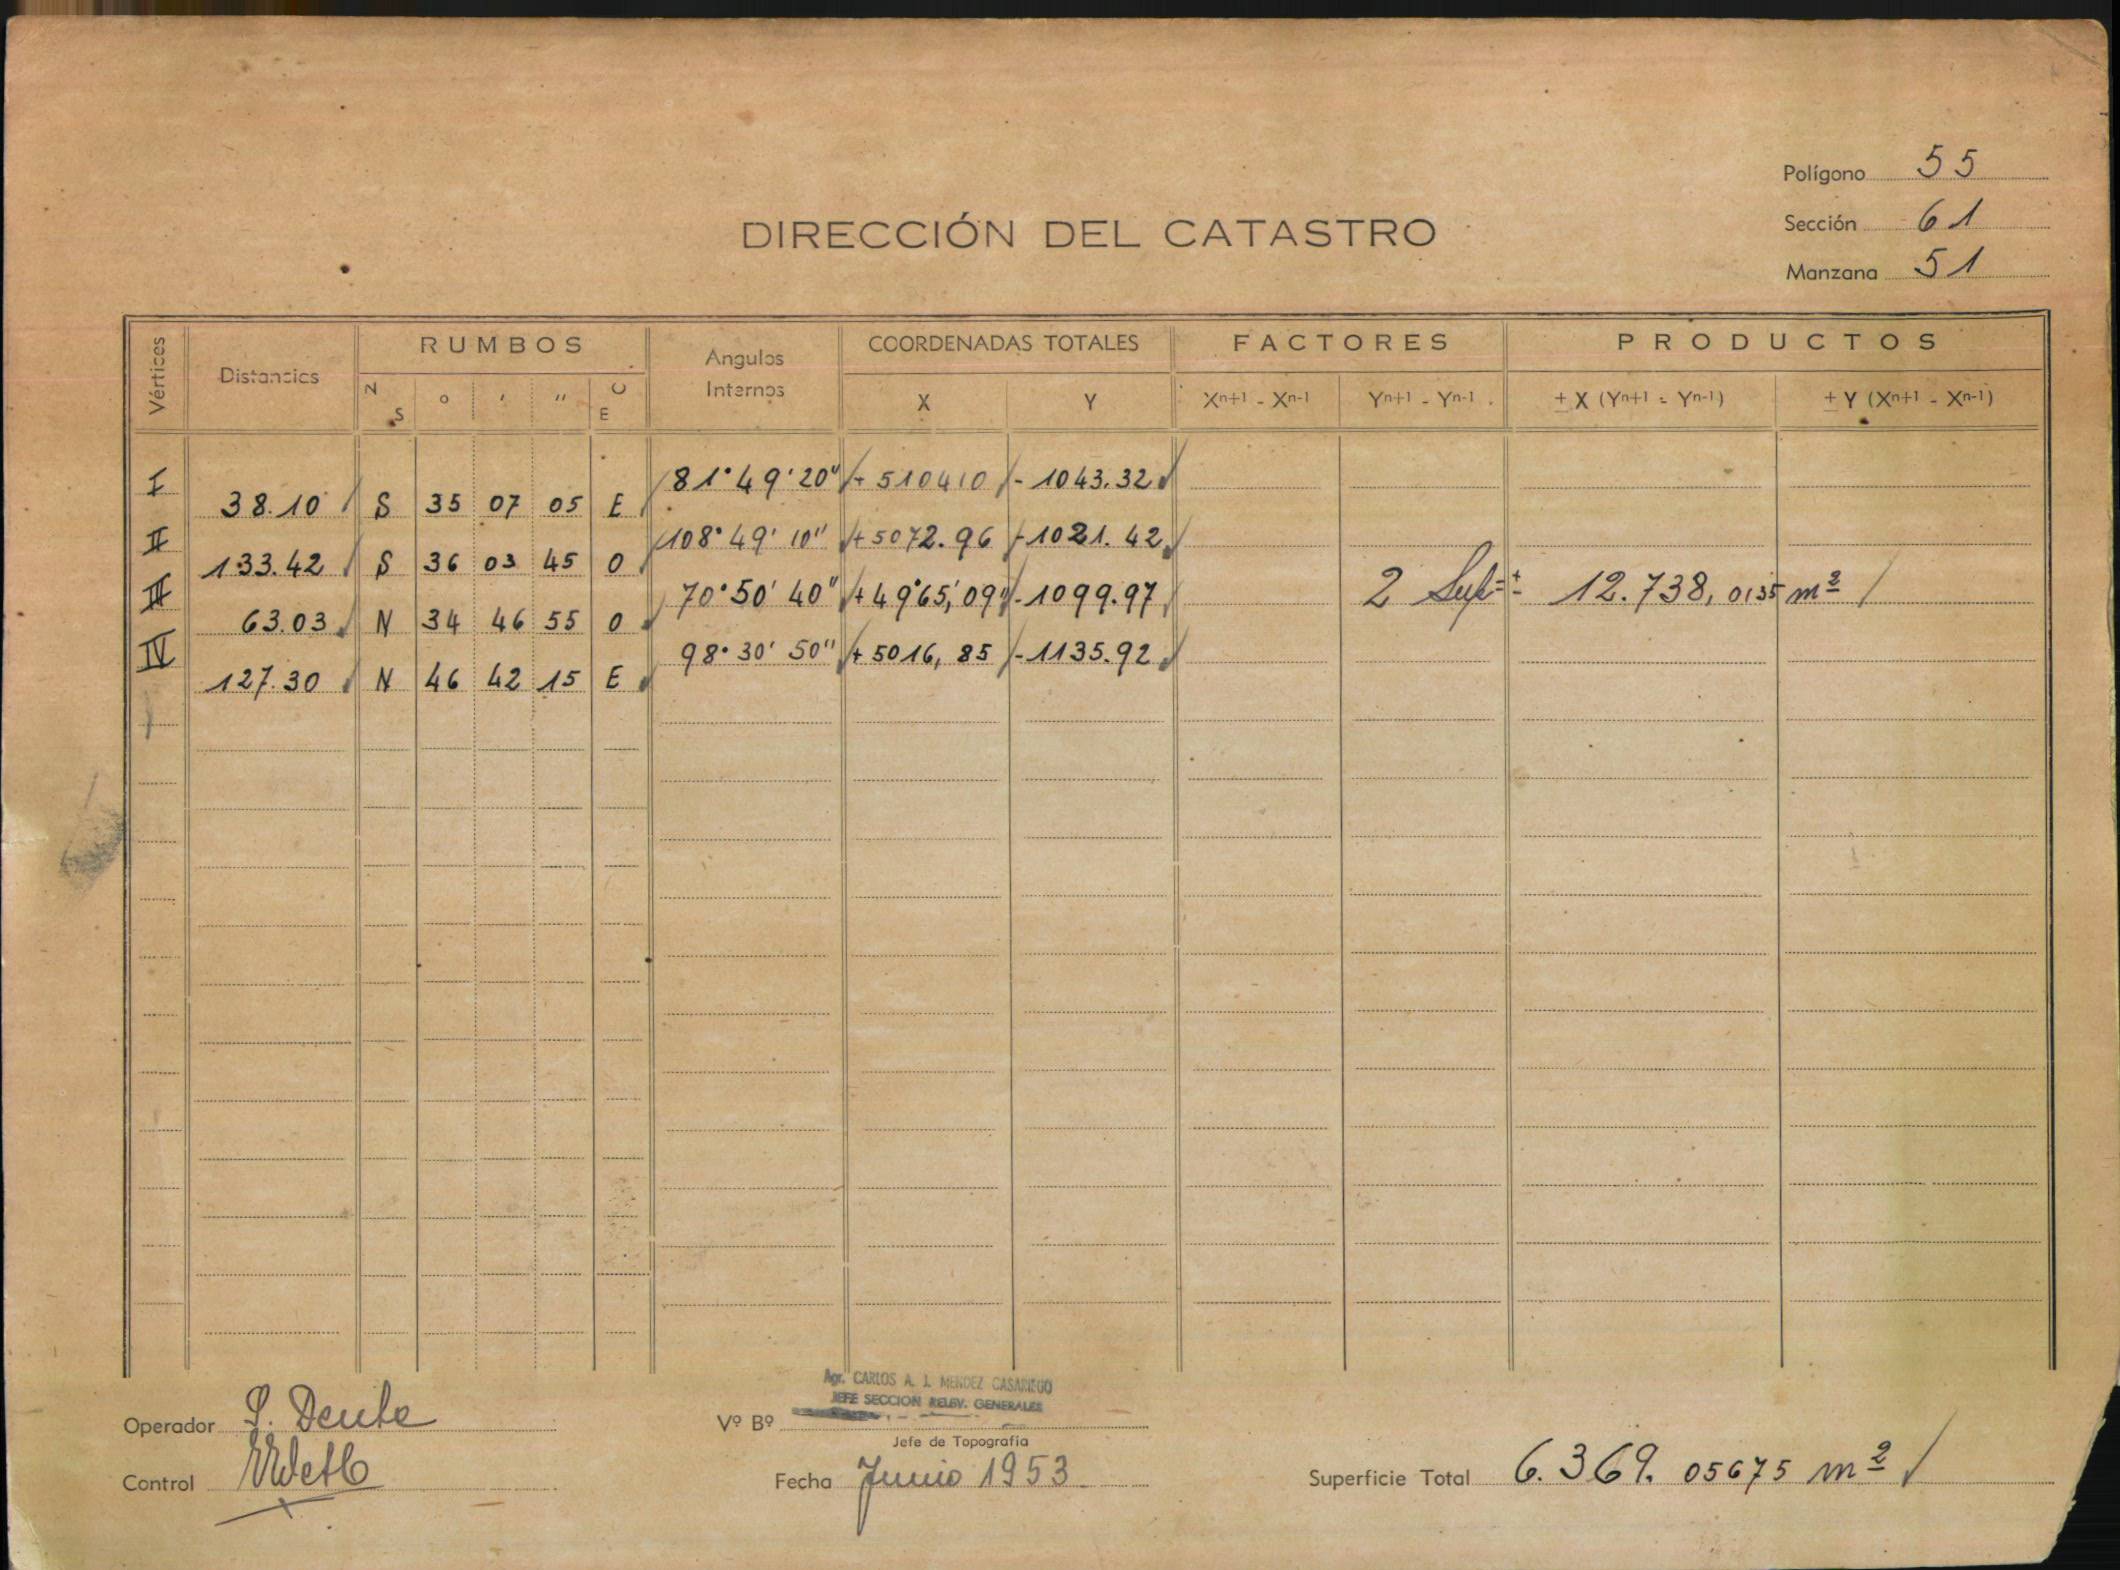 Polígono 55
DIRECCIÓN DEL CATASTRO
Sección 61
Manzana 51
Vértices Distancias RUMBOS Angulos Internos COORDENADAS TOTALES FACTORES PRODUCTOS
N S ° ' " O E X Y Xn+1 - Xn-1 Yn+1 - Yn-1 ± X (Yn+1 - Yn-1) ± Y (Xn+1 - Xn-1)
I 81° 49' 20" + 510410 - 1043.32
38.10 S 35 07 05 E
II 108° 49' 10" + 5072.96 - 1021.42
133.42 S 36 03 45 O
III 70° 50' 40" + 4965,09 - 1099.97 2 Sup = ± 12.738,0135 m²
63.03 N 34 46 55 O
IV 98° 30' 50" + 5016,85 - 1135.92
127.30 N 46 42 15 E
Agr. CARLOS A. J. MENDEZ CASARIEGO
JEFE SECCION RELEV. GENERALES
Operador Vº Bº
Jefe de Topografía
Control Fecha Junio 1953 Superficie Total 6.369.05675 m²